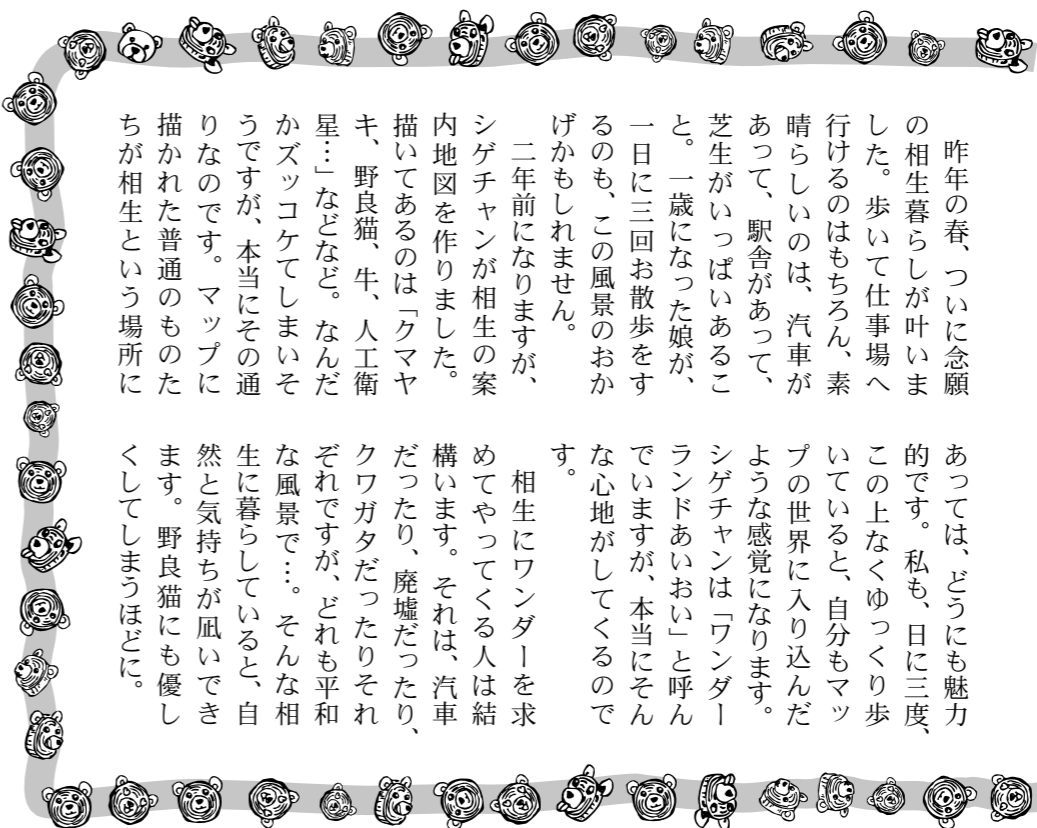 昨年の春、ついに念願
の相生暮らしが叶いま
した。歩いて仕事場へ
行けるのはもちろん、素
晴らしいのは、汽車が
あって、駅舎があって、
芝生がいっぱいあるこ
と。一歳になった娘が、
一日に三回お散歩をす
るのも、この風景のおか
げかもしれません。
二年前になりますが、
シゲチャンが相生の案
内地図を作りました。
描いてあるのは「クマヤ
キ、野良猫、牛、人工衛
星…」などなど。なんだ
かズッコケてしまいそ
うですが、本当にその通
りなのです。マップに
描かれた普通のものた
ちが相生という場所に
あっては、どうにも魅力
的です。私も、日に三度、
この上なくゆっくり歩
いていると、自分もマッ
プの世界に入り込んだ
ような感覚になります。
シゲチャンは「ワンダー
ランドあいおい」と呼ん
でいますが、本当にそん
な心地がしてくるので
す。
相生にワンダーを求
めてやってくる人は結
構います。それは、汽車
だったり、廃墟だったり、
クワガタだったりそれ
ぞれですが、どれも平和
な風景で…。そんな相
生に暮らしていると、自
然と気持ちが凪いでき
ます。野良猫にも優し
くしてしまうほどに。